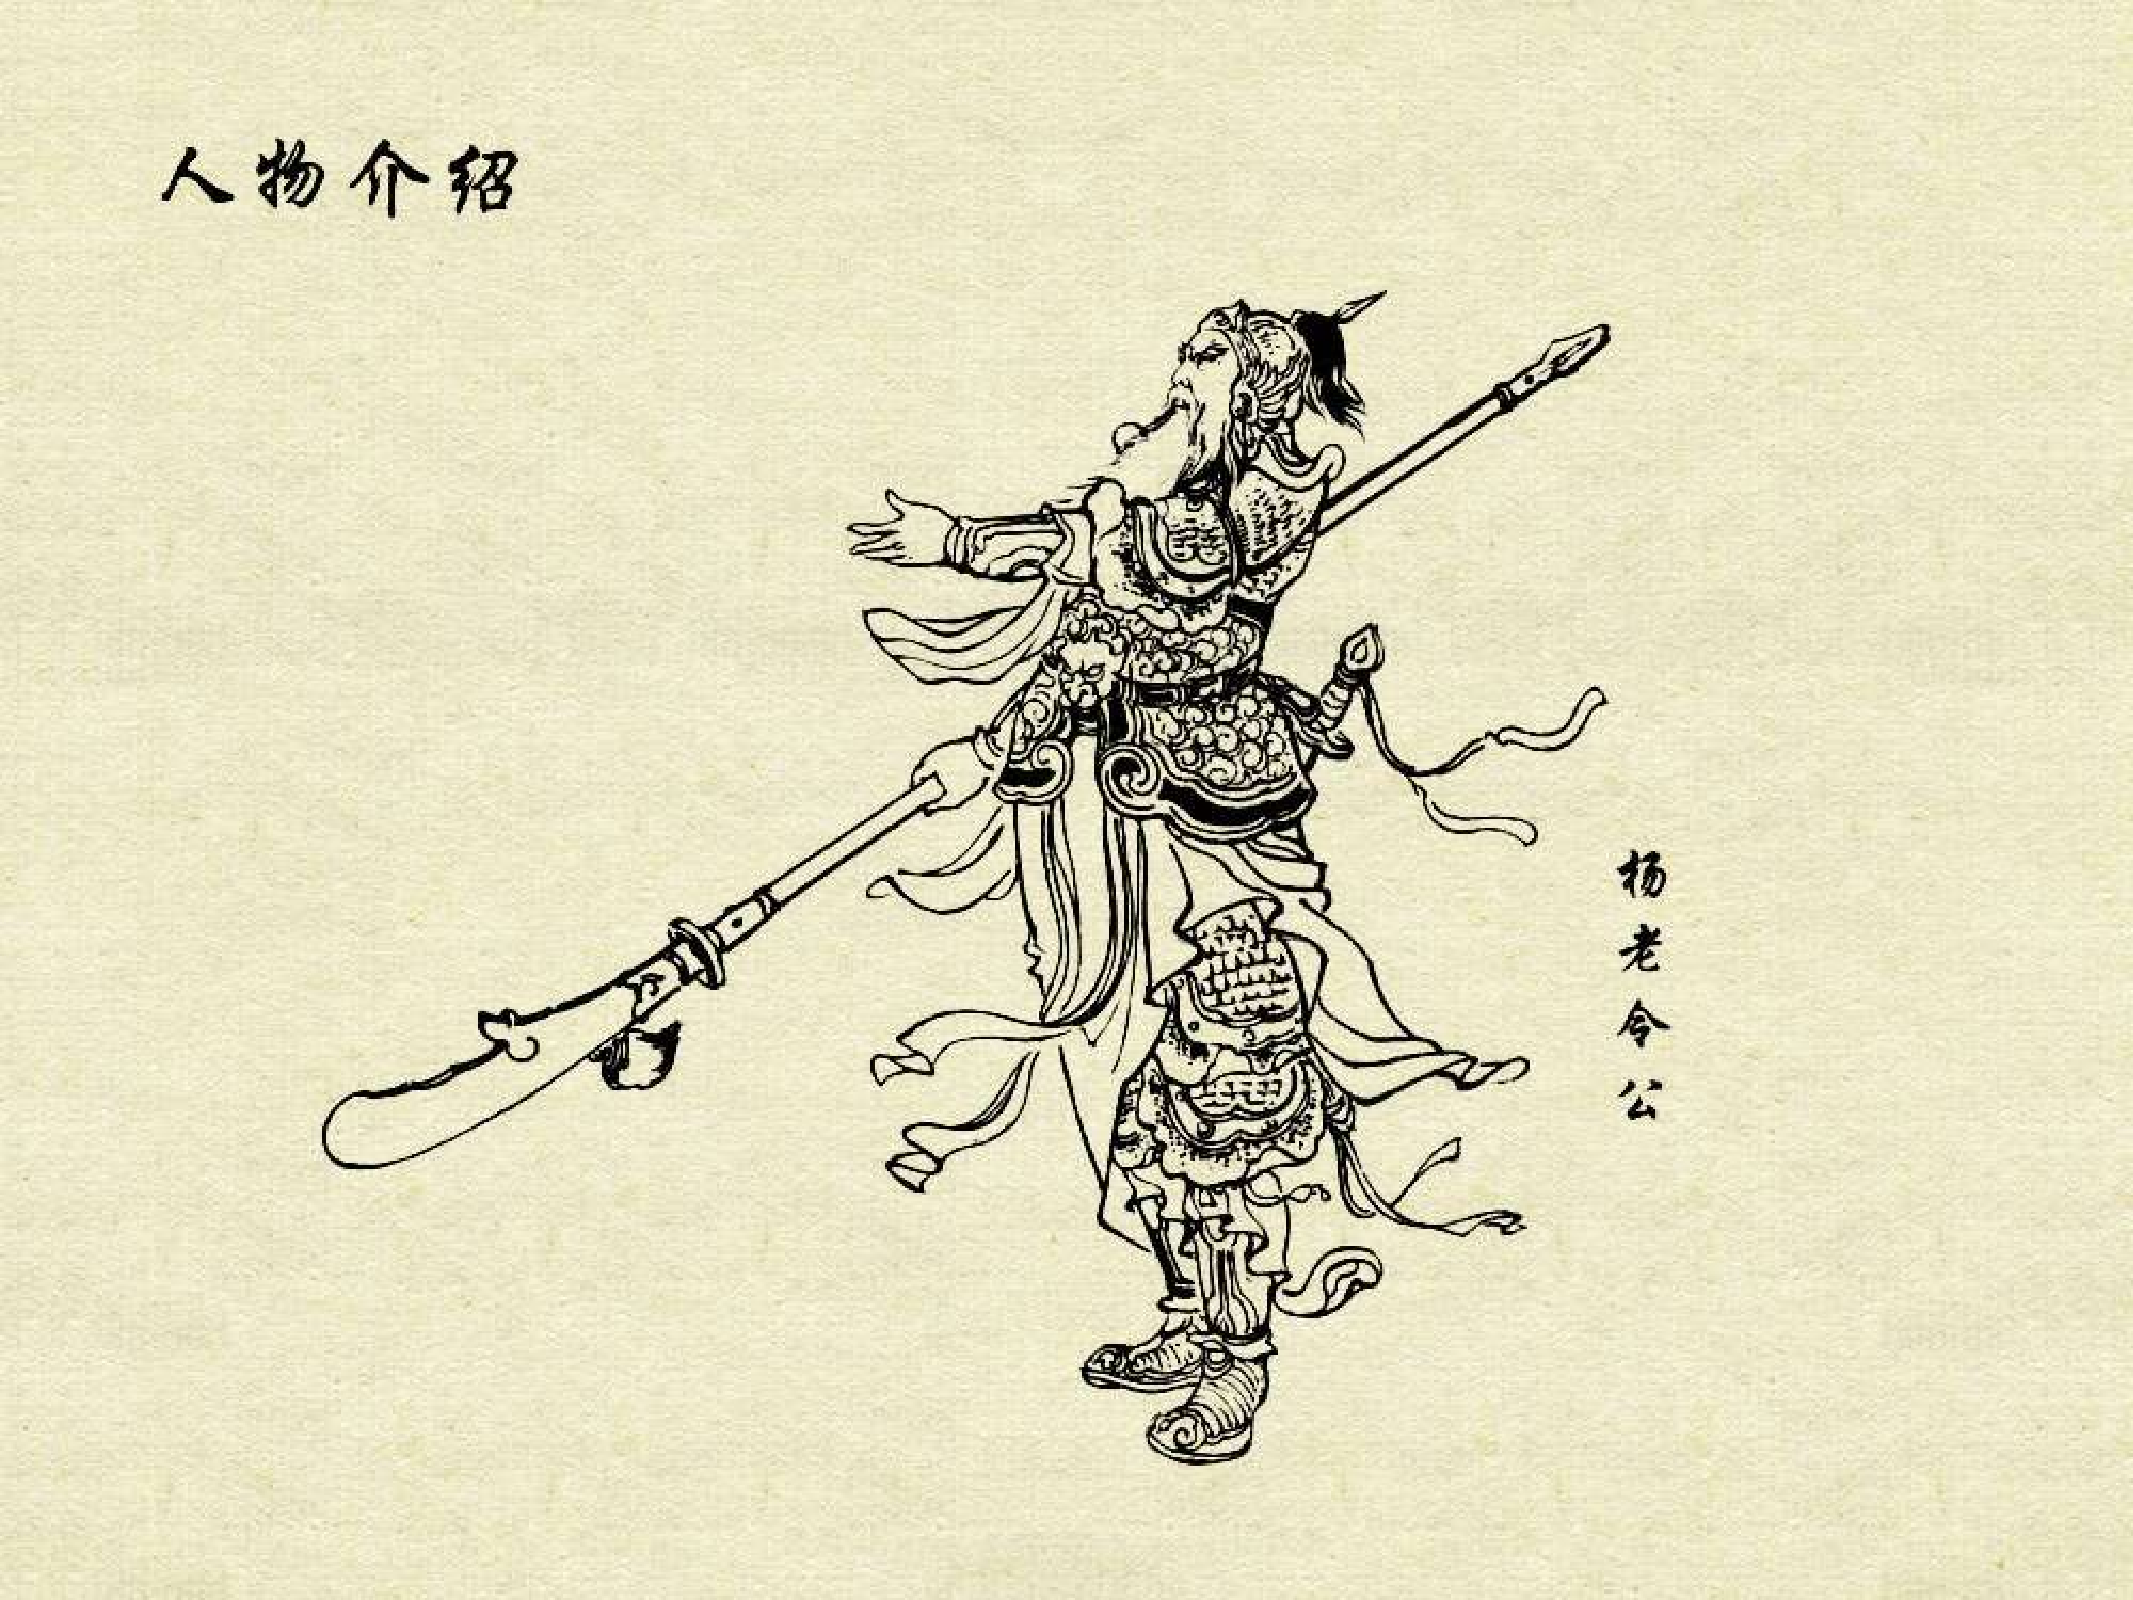 人物介绍
杨老令公